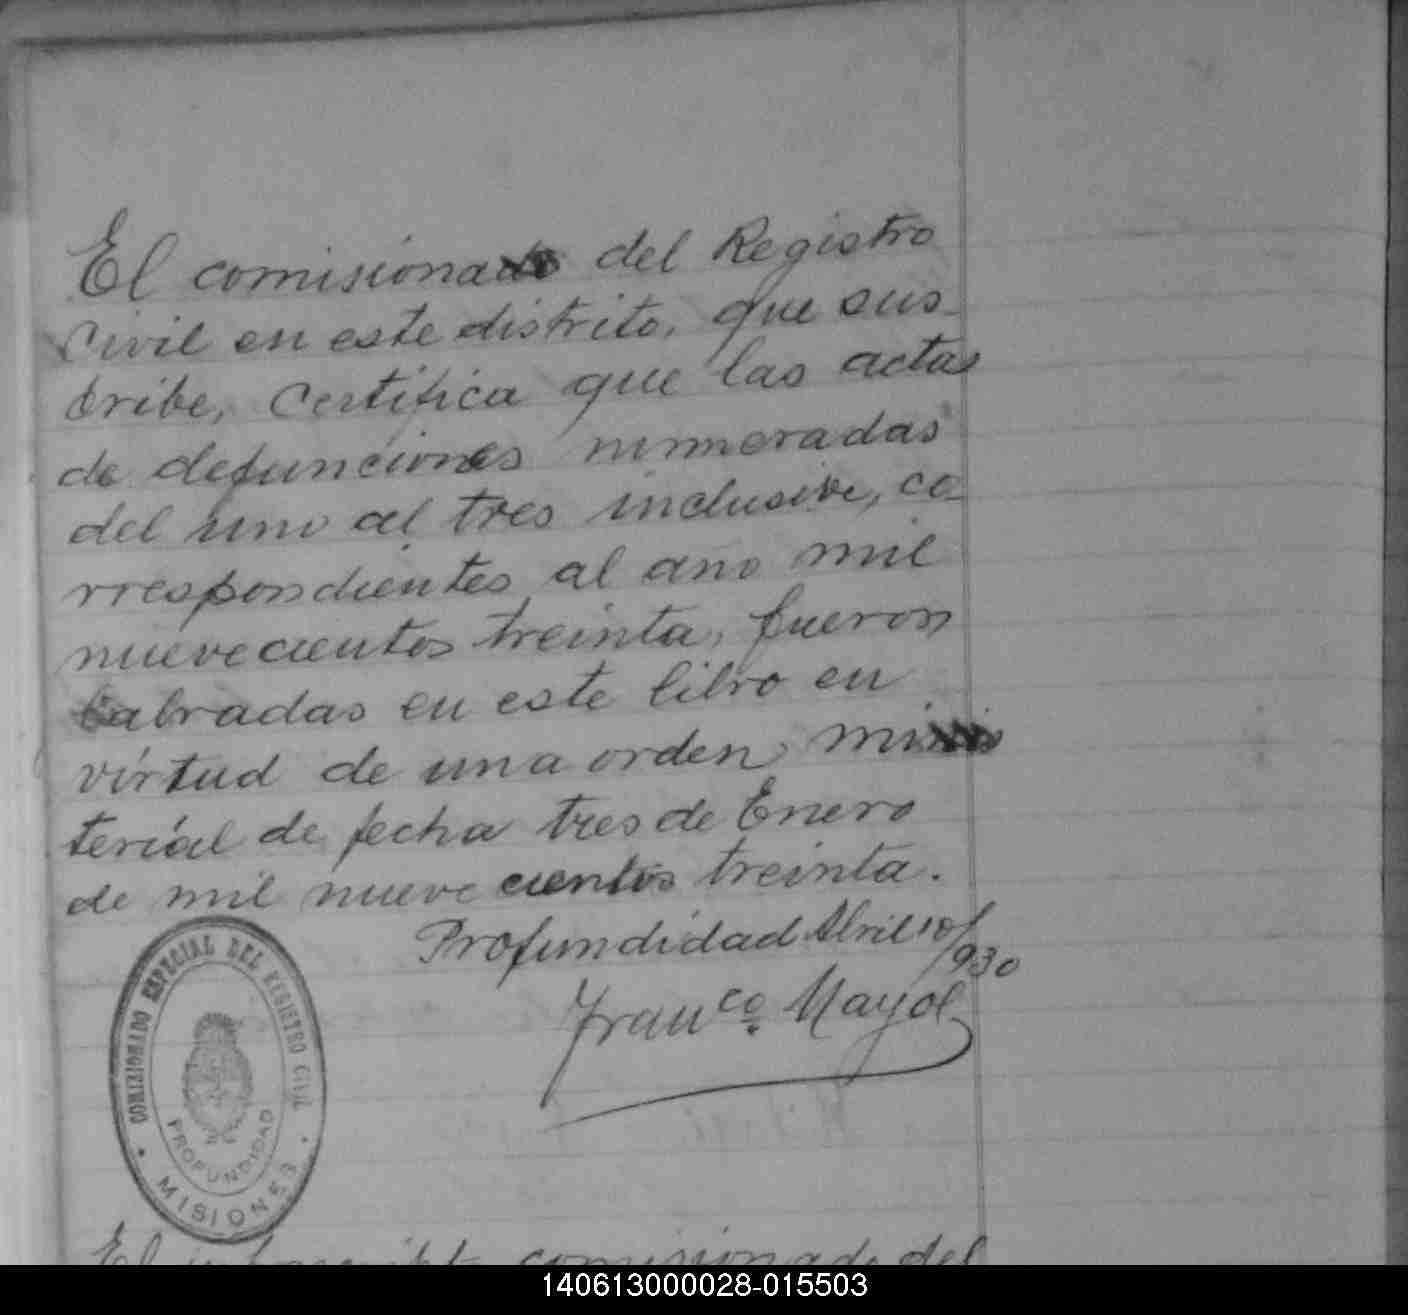 El comisionado del Registro
Civil en este distrito, que sus-
cribe, Certifica que las actas
de defunciones numeradas
del uno al tres inclusive, co-
rrespondientes al año mil
nuevecientos treinta, fueron
labradas en este libro en
virtud de una orden minis
terial de fecha tres de Enero
de mil nueve cientos treinta.
Profundidad Abril 10/
930
Franco. Mayol
COMISIONADO ESPECIAL DEL REGISTRO CIVIL
PROFUNDIDAD
MISIONES
El comisionado del
140613000028-015503